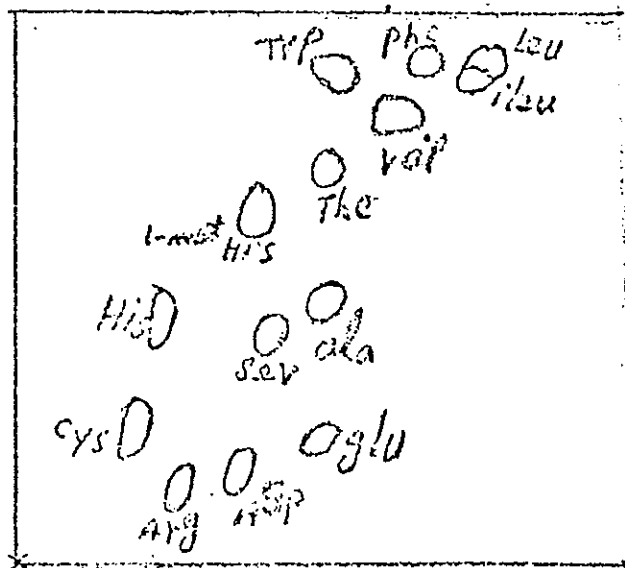 Trp
phe
Leu
ileu
val
The
1-met
His
His
ser
ala
cys
glu
Arg
Asp